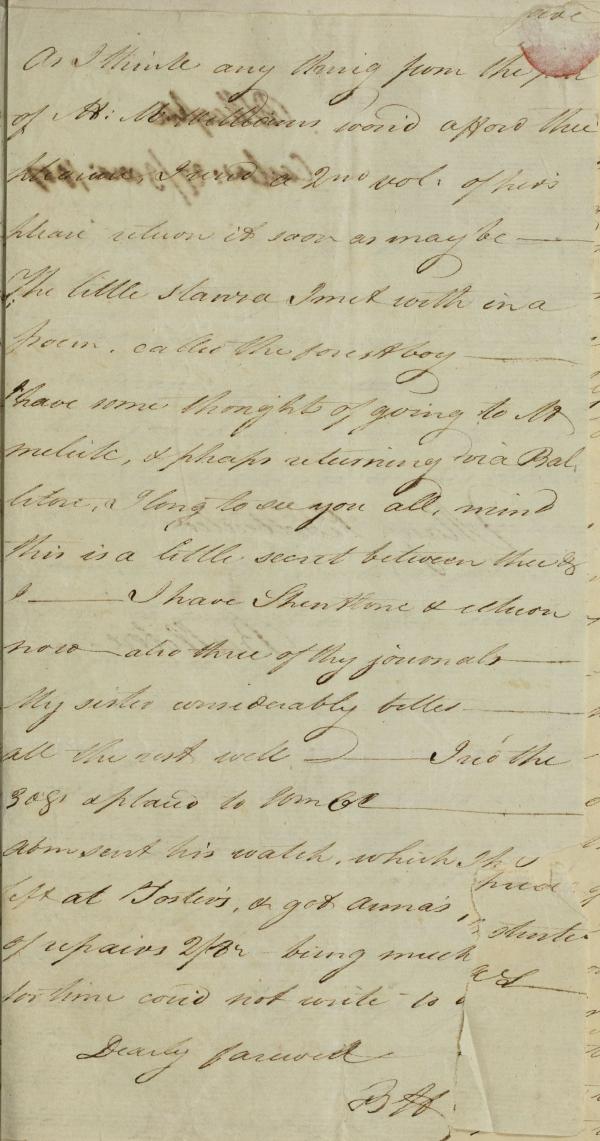 gave
As I think any thing from the pen
of H: M: Williams wou'd afford thee
pleasure, I send a 2nd vol: of hers
please return it soon as may be —
The little stanza I met with in a
poem, called the forest boy —
I have some thought of going to Mt
melick, & phaps returning via Bal,
litore, I long to see you all, mind
this is a little secret between thee &
I — I have Shenstone & return
now — also three of thy journals —
My sister considerably better —
all the rest well — I rec'd the
& placed to
Abm sent his watch, which I
left at Foster's, & got Anna's,
of repairs — being much
for time cou'd not write to
Dearly farewell